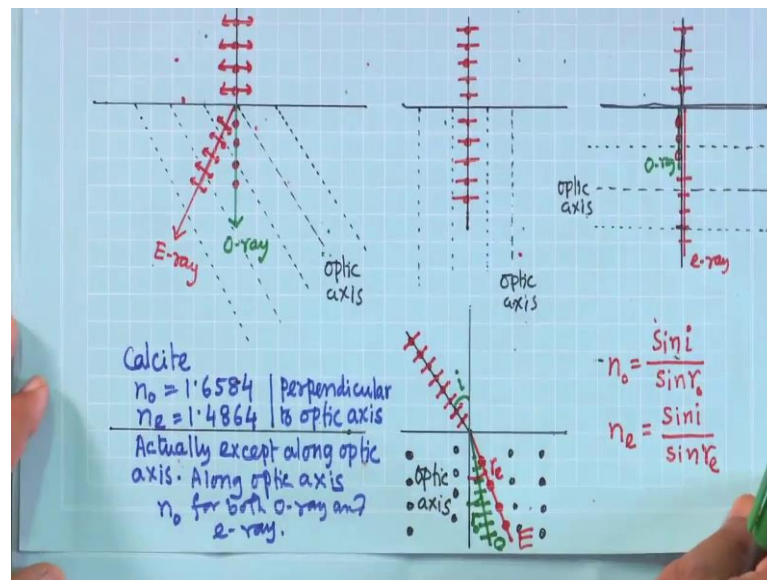 E-ray
O-ray
optic
axis
optic
axis
optic
axis
O-ray
e-ray
Calcite
n₀ = 1.6584 | perpendicular
nₑ = 1.4864 | to optic axis
Actually except along optic
axis. Along optic axis
n₀ for both O-ray and
e-ray.
i
optic
axis
rₑ
O
E
n₀ = sin i / sin r₀
nₑ = sin i / sin rₑ